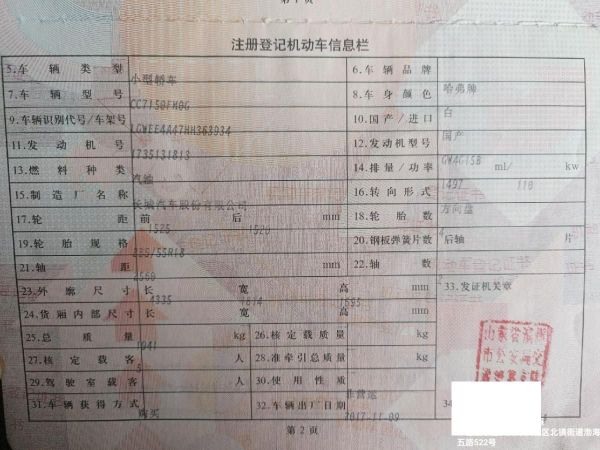 注册登记机动车信息栏
5.车辆类型 小型轿车 6.车辆品牌 哈弗牌
7.车辆型号 CC7150FM0G 8.车身颜色 白
9.车辆识别代号/车架号 LGWEE4A47HH363934 10.国产/进口 国产
11.发动机号 1735131813 12.发动机型号 GW4G15B
13.燃料种类 汽油 14.排量/功率 1497 ml/ 110 kw
15.制造厂名称 长城汽车股份有限公司 16.转向形式 方向盘
17.轮距 前 1525 后 1520 mm 18.轮胎数 4
19.轮胎规格 235/55R18 20.钢板弹簧片数 后轴 片
21.轴距 4560 mm 22.轴数
23.外廓尺寸 长 4335 宽 1814 高 1695 mm 33.发证机关章
24.货厢内部尺寸 长 宽 高 mm
25.总质量 1941 kg 26.核定载质量 kg
27.核定载客 5 人 28.准牵引总质量 kg
29.驾驶室载客 人 30.使用性质 非营运
31.车辆获得方式 购买 32.车辆出厂日期 2017-11-09 34
第 2 页
区北镇街道渤海
五路522号